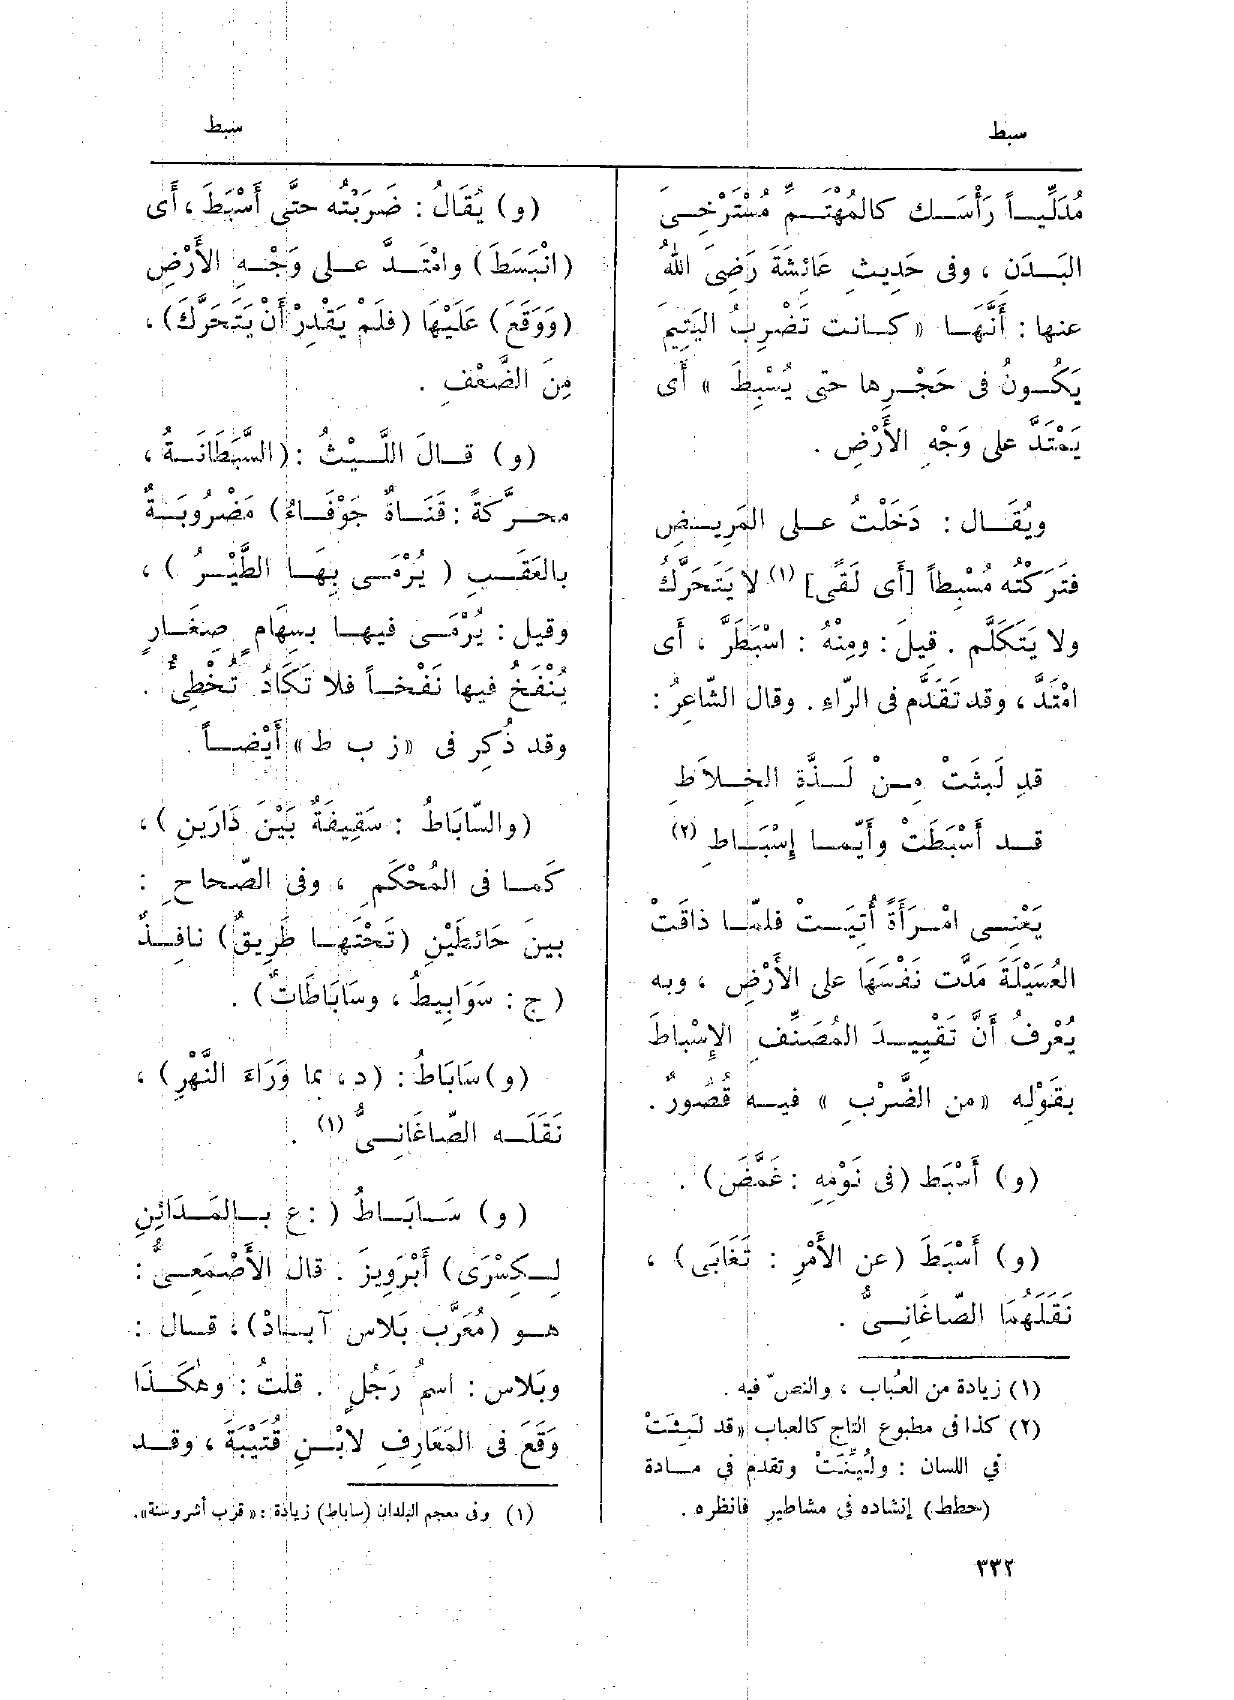 سبط
سبط
مُدَلِّيـاً رَأْسَـك كالمُهْتَـمِّ مُسْتَرْخِـىَ
البَـدَنِ ، وفى حَدِيثِ عَائِشَةَ رَضِىَ اللهُ
عنها : أَنَّهَـا « كـانت تَضْرِبُ اليَتِيمَ
يَكُـونُ فى حَجْـرِها حتى يُسْبِطَ » أَى
يَمْتَدَّ على وَجْهِ الأَرْضِ .
ويُقَـال : دَخَلْتُ عـلى المَرِيـضِ
فتَرَكْتُه مُسْبِطاً [أَى لَقًى] (١) لا يَتَحَرَّكُ
ولا يَتَكَلَّم . قِيلَ : ومِنْهُ : اسْبَطَرَّ ، أَى
امْتَدَّ ، وقد تَقَدَّم فى الرّاءِ . وقال الشّاعِرُ :
قدِ لَبِثَتْ مِـنْ لَـذَّةِ الخِـلاَطِ
قـد أَسْبَطَتْ وأَيّمـا إِسْبَـاطِ (٢)
يَعْنِـى امْـرَأَةً أُتِيَـتْ فلمّـا ذاقَتْ
العُسَيْلَةَ مَدَّت نَفْسَهَا على الأَرْضِ ، وبه
يُعْرفُ أَنَّ تَقْيِيـدَ المُصَنِّفِ الإِسْباطَ
بقَوْلِه «من الضَّرْبِ » فيـه قُصُورٌ .
(و) أَسْبَط (فى نَوْمِهِ : غَمَّضَ) .
(و) أَسْبَطَ (عن الأَمْرِ : تَغَابَى) ،
نَقَلَهُمَا الصّاغَانِـىُّ .
(١) زيادة من العُباب ، والنص فيه .
(٢) كذا فى مطبوع التاج كالعباب «قد لَبِثَتْ
في اللسان : ولُيِّنَتْ وتقدم فى مـادة
(خطط) إنشاده فى مشاطير فانظره .
(و) يُقَالُ : ضَرَبْتُه حتَّى أَسْبَطَ ، أَى
(انْبَسَطَ) وامْتَـدَّ عـلى وَجْـهِ الأَرْضِ
(وَوَقَعَ) عَلَيْهَا (فلَمْ يَقْدِرْ أَنْ يَتَحَرَّكَ) ،
مِنَ الضَّعْفِ .
(و) قـالَ اللَّـيْثُ : (السَّبَطَانَـةُ ،
محـرَّكةً : قَنَـاةٌ جَوْفَـاءُ) مَضْرُوبَـةٌ
بالعَقَـبِ ( يُرْمَـى بِهَـا الطَّيْـرُ ) ،
وقيل : يُرْمَـى فيهـا بسِهَامٍ صِغَـارٍ
يُنْفَخُ فيها نَفْخـاً فلا تَكَادُ تُخْطِئُ .
وقد ذُكِر فى «ز ب ط» أَيْضـاً .
(والسّابَاطُ : سَقِيفَةٌ بَيْنَ دَارَينِ) ،
كمـا فى المُحْكَمِ ، وفى الصّحاحِ :
بينَ حَائطَيْنِ (تَحْتَهـا طَرِيقٌ) نافِـذٌ
( ج : سَوَابِيطُ ، وسَابَاطَاتٌ ) .
(و) سَابَاطُ : (د، بما وَرَاءَ النَّهْرِ) ،
نَقَلَـه الصّاغَانِـىُّ (١) .
( و ) سَـابَـاطُ ( : ع بـالمَـدَائِنِ
لِـكِسْرَى) أَبْرَوِيزَ . قال الأَصْمَعِـىُّ :
هـو (مُعَرَّب بَلاس آبـاذْ) ، قـال :
وبَلاس : اسمُ رَجُلٍ . قلتُ : وهٰكَـذَا
وَقَعَ فى المَعَارِفِ لابْـنِ قُتَيْبَةَ ، وقـد
(١) وفى معجم البلدان (ساباط) زيادة : «قرب أشروسنة».
٣٣٢